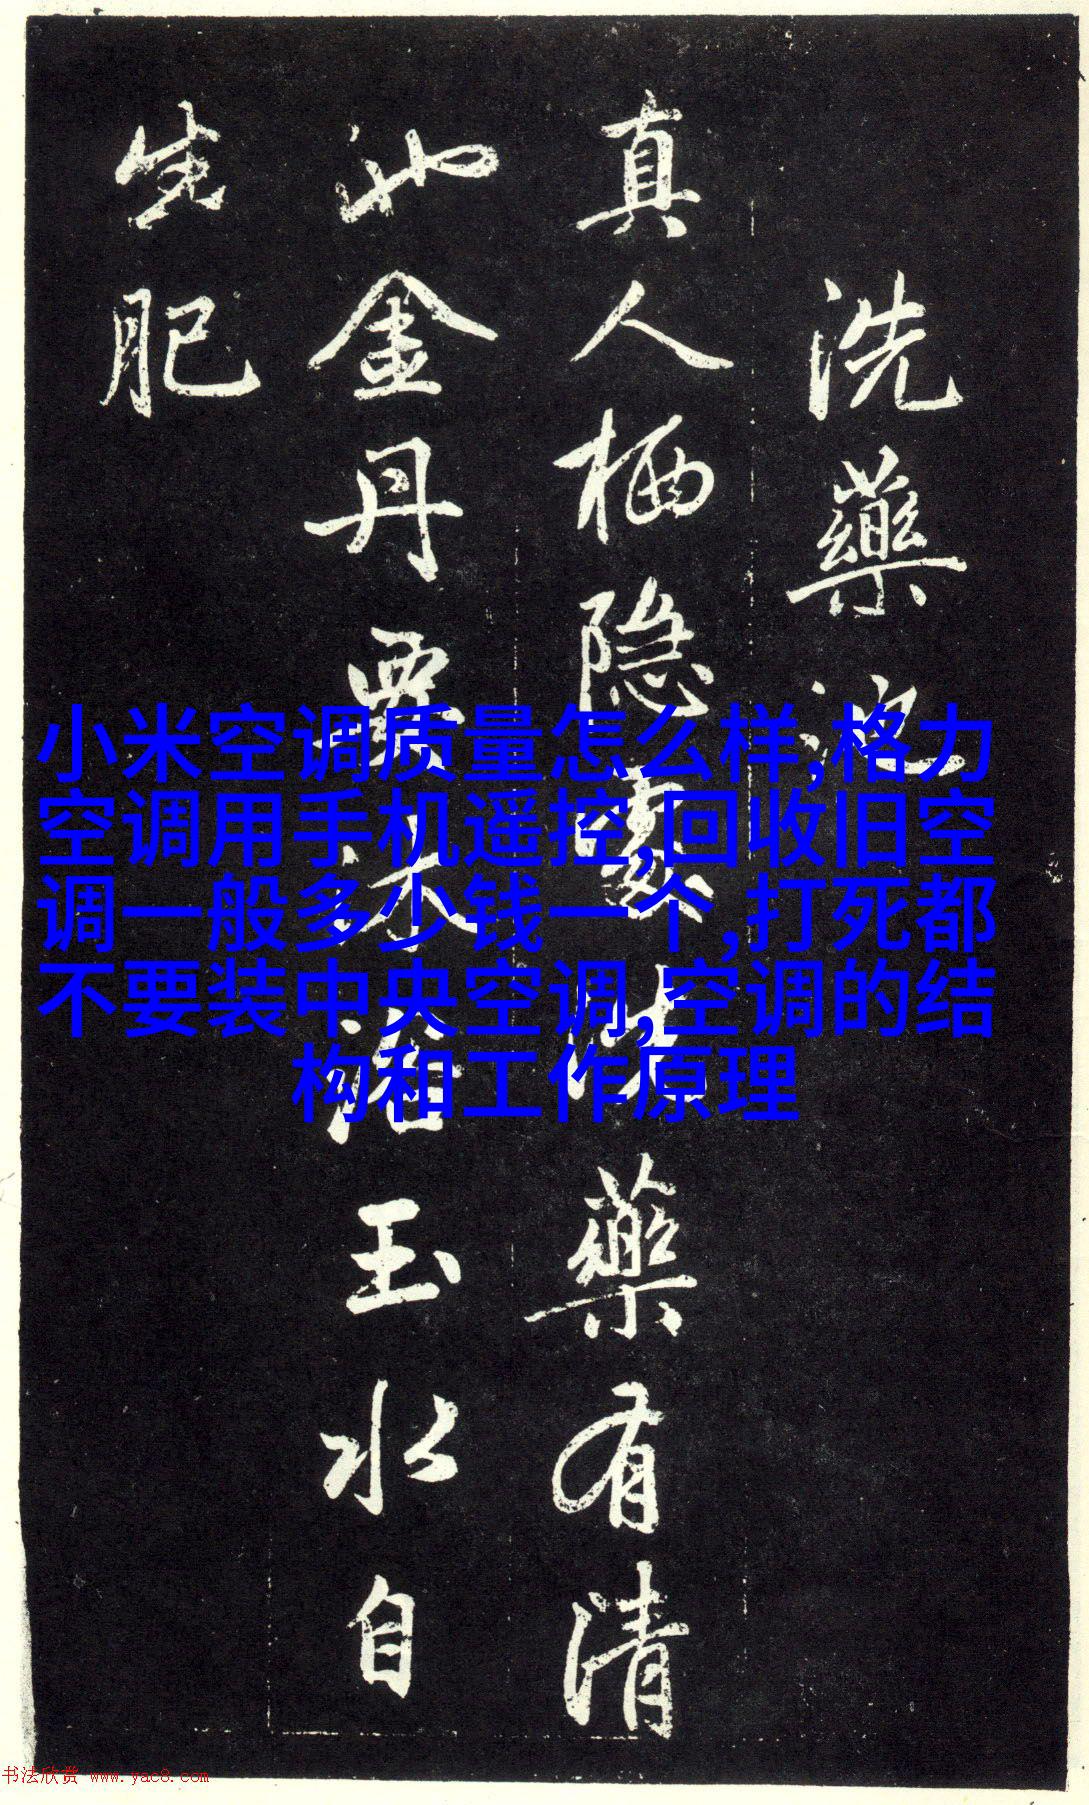 洗藥池
真人栖隐處洗藥有清
池金丹要沐浴玉水自
生肥
小米空调质量怎么样,格力
空调用手机遥控,回收旧空
调一般多少钱一个,打死都
不要装中央空调,空调的结
构和工作原理
书法欣赏 www.yac8.com